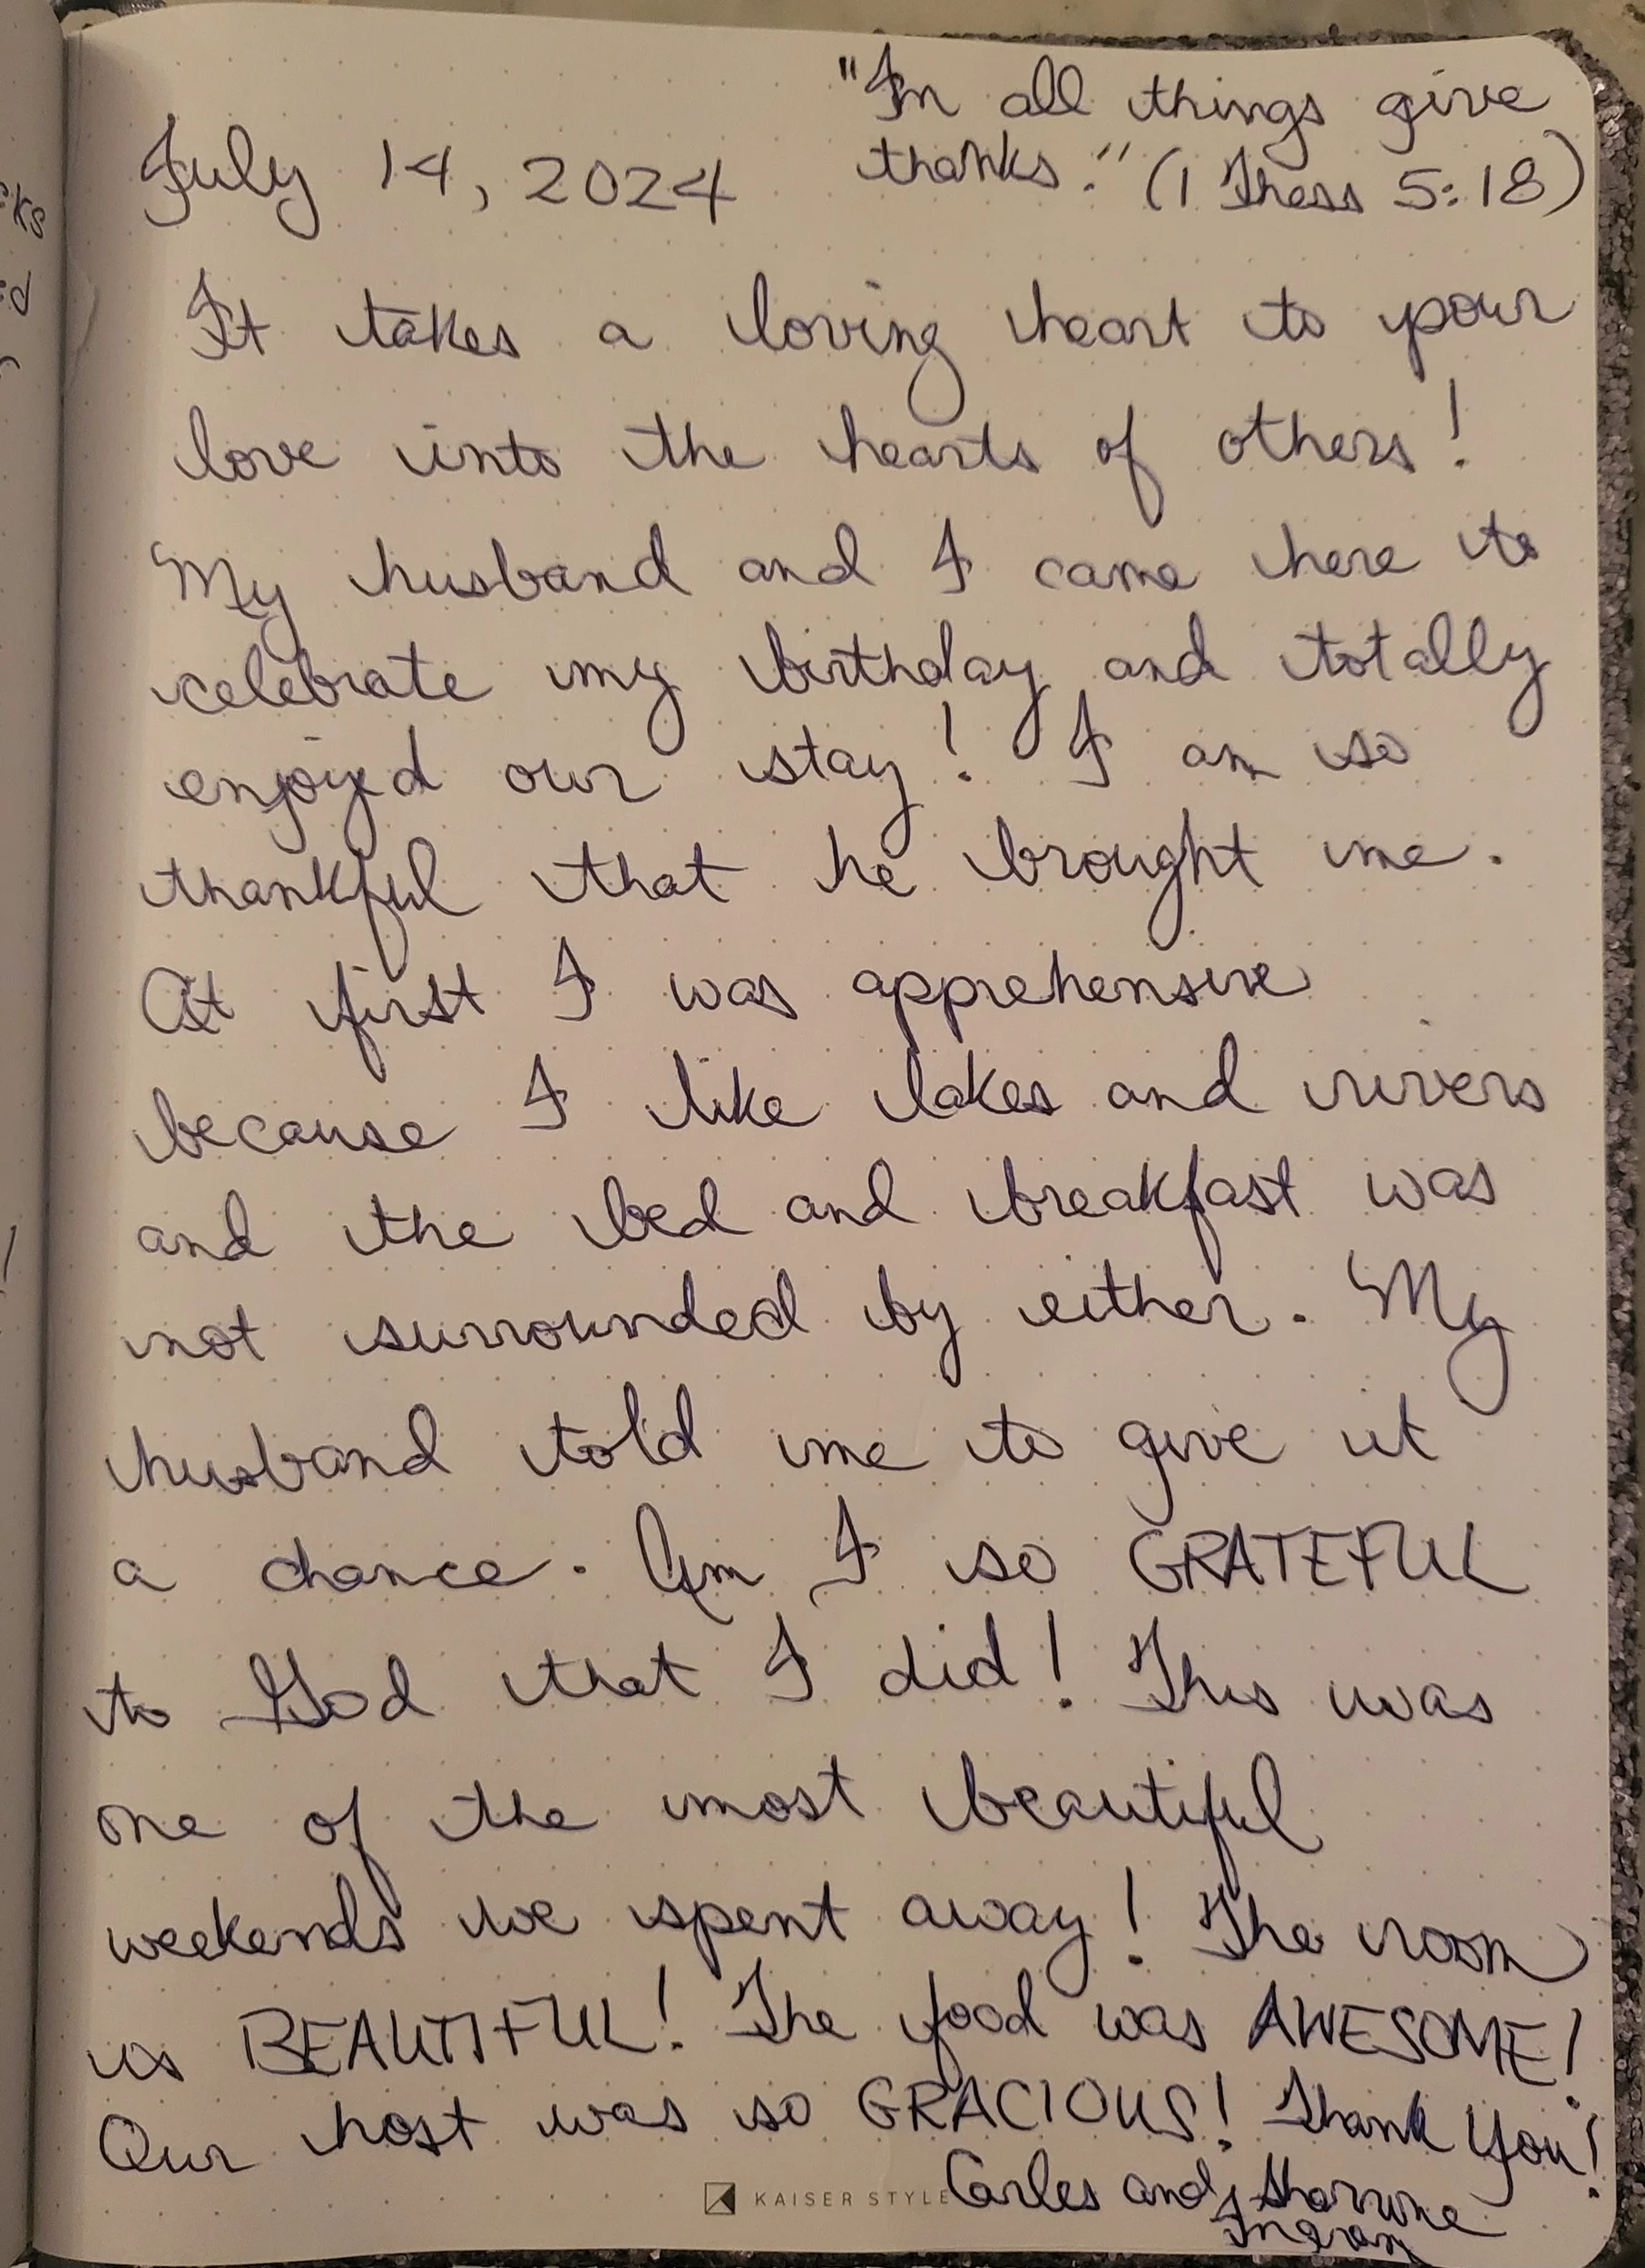 "In all things give
July 14, 2024 thanks." (1 Thess 5:18)
It takes a loving heart to pour
love into the hearts of others!
My husband and I came here to
celebrate my birthday and totally
enjoyed our stay! I am so
thankful that he brought me.
At first I was apprehensive
because I like lakes and rivers
and the bed and breakfast was
not surrounded by either. My
husband told me to give it
a chance. Am I so GRATEFUL
to God that I did! This was
one of the most beautiful
weekends we spent away! The room
is BEAUTIFUL! The food was AWESOME!
Our host was so GRACIOUS! Thank You!
KAISER STYLE Carles and